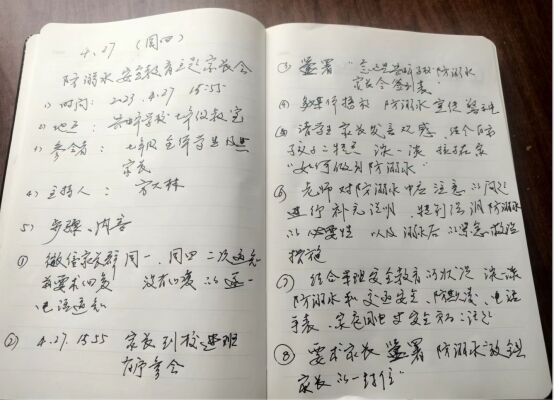 4.27 (周四)
防溺水安全教育主题家长会
1) 时间: 2023.4.27 15:55
2) 地点: 学校七年级教室
3) 参会者: 七年级全体学生及其
家长
4) 主持人:
5) 步骤、内容
① 微信家长群周一、周四二次通知
并要求回复 没有回复的逐一
电话通知
② 4.27. 15:55 家长到校进班
有序参会
③ 签署 "学校防溺水
家长会签到表"
④ 多媒体播放 防溺水宣传
⑤ 请学生家长发言观感, 结合自己
孩子的特点 谈一谈
"如何做到防溺水"
⑥ 老师对防溺水中应注意的
进行补充说明, 特别强调防溺水
的必要性 以及溺水后的紧急救治
措施
⑦ 结合本班安全教育的状况 谈谈
防溺水和交通安全、防欺凌、电话
手表、家庭用电安全等
⑧ 要求家长签署 防溺水致
家长的一封信"